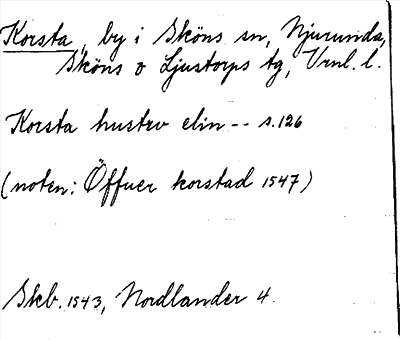 Korsta, by i Sköns sn, Njurunda,
Sköns o Ljustorps tg, Vrnl. l.
Korsta hustrv elin -- s.126
(noten: Öffuer korstad 1547)
Skb. 1543, Nordlander 4.